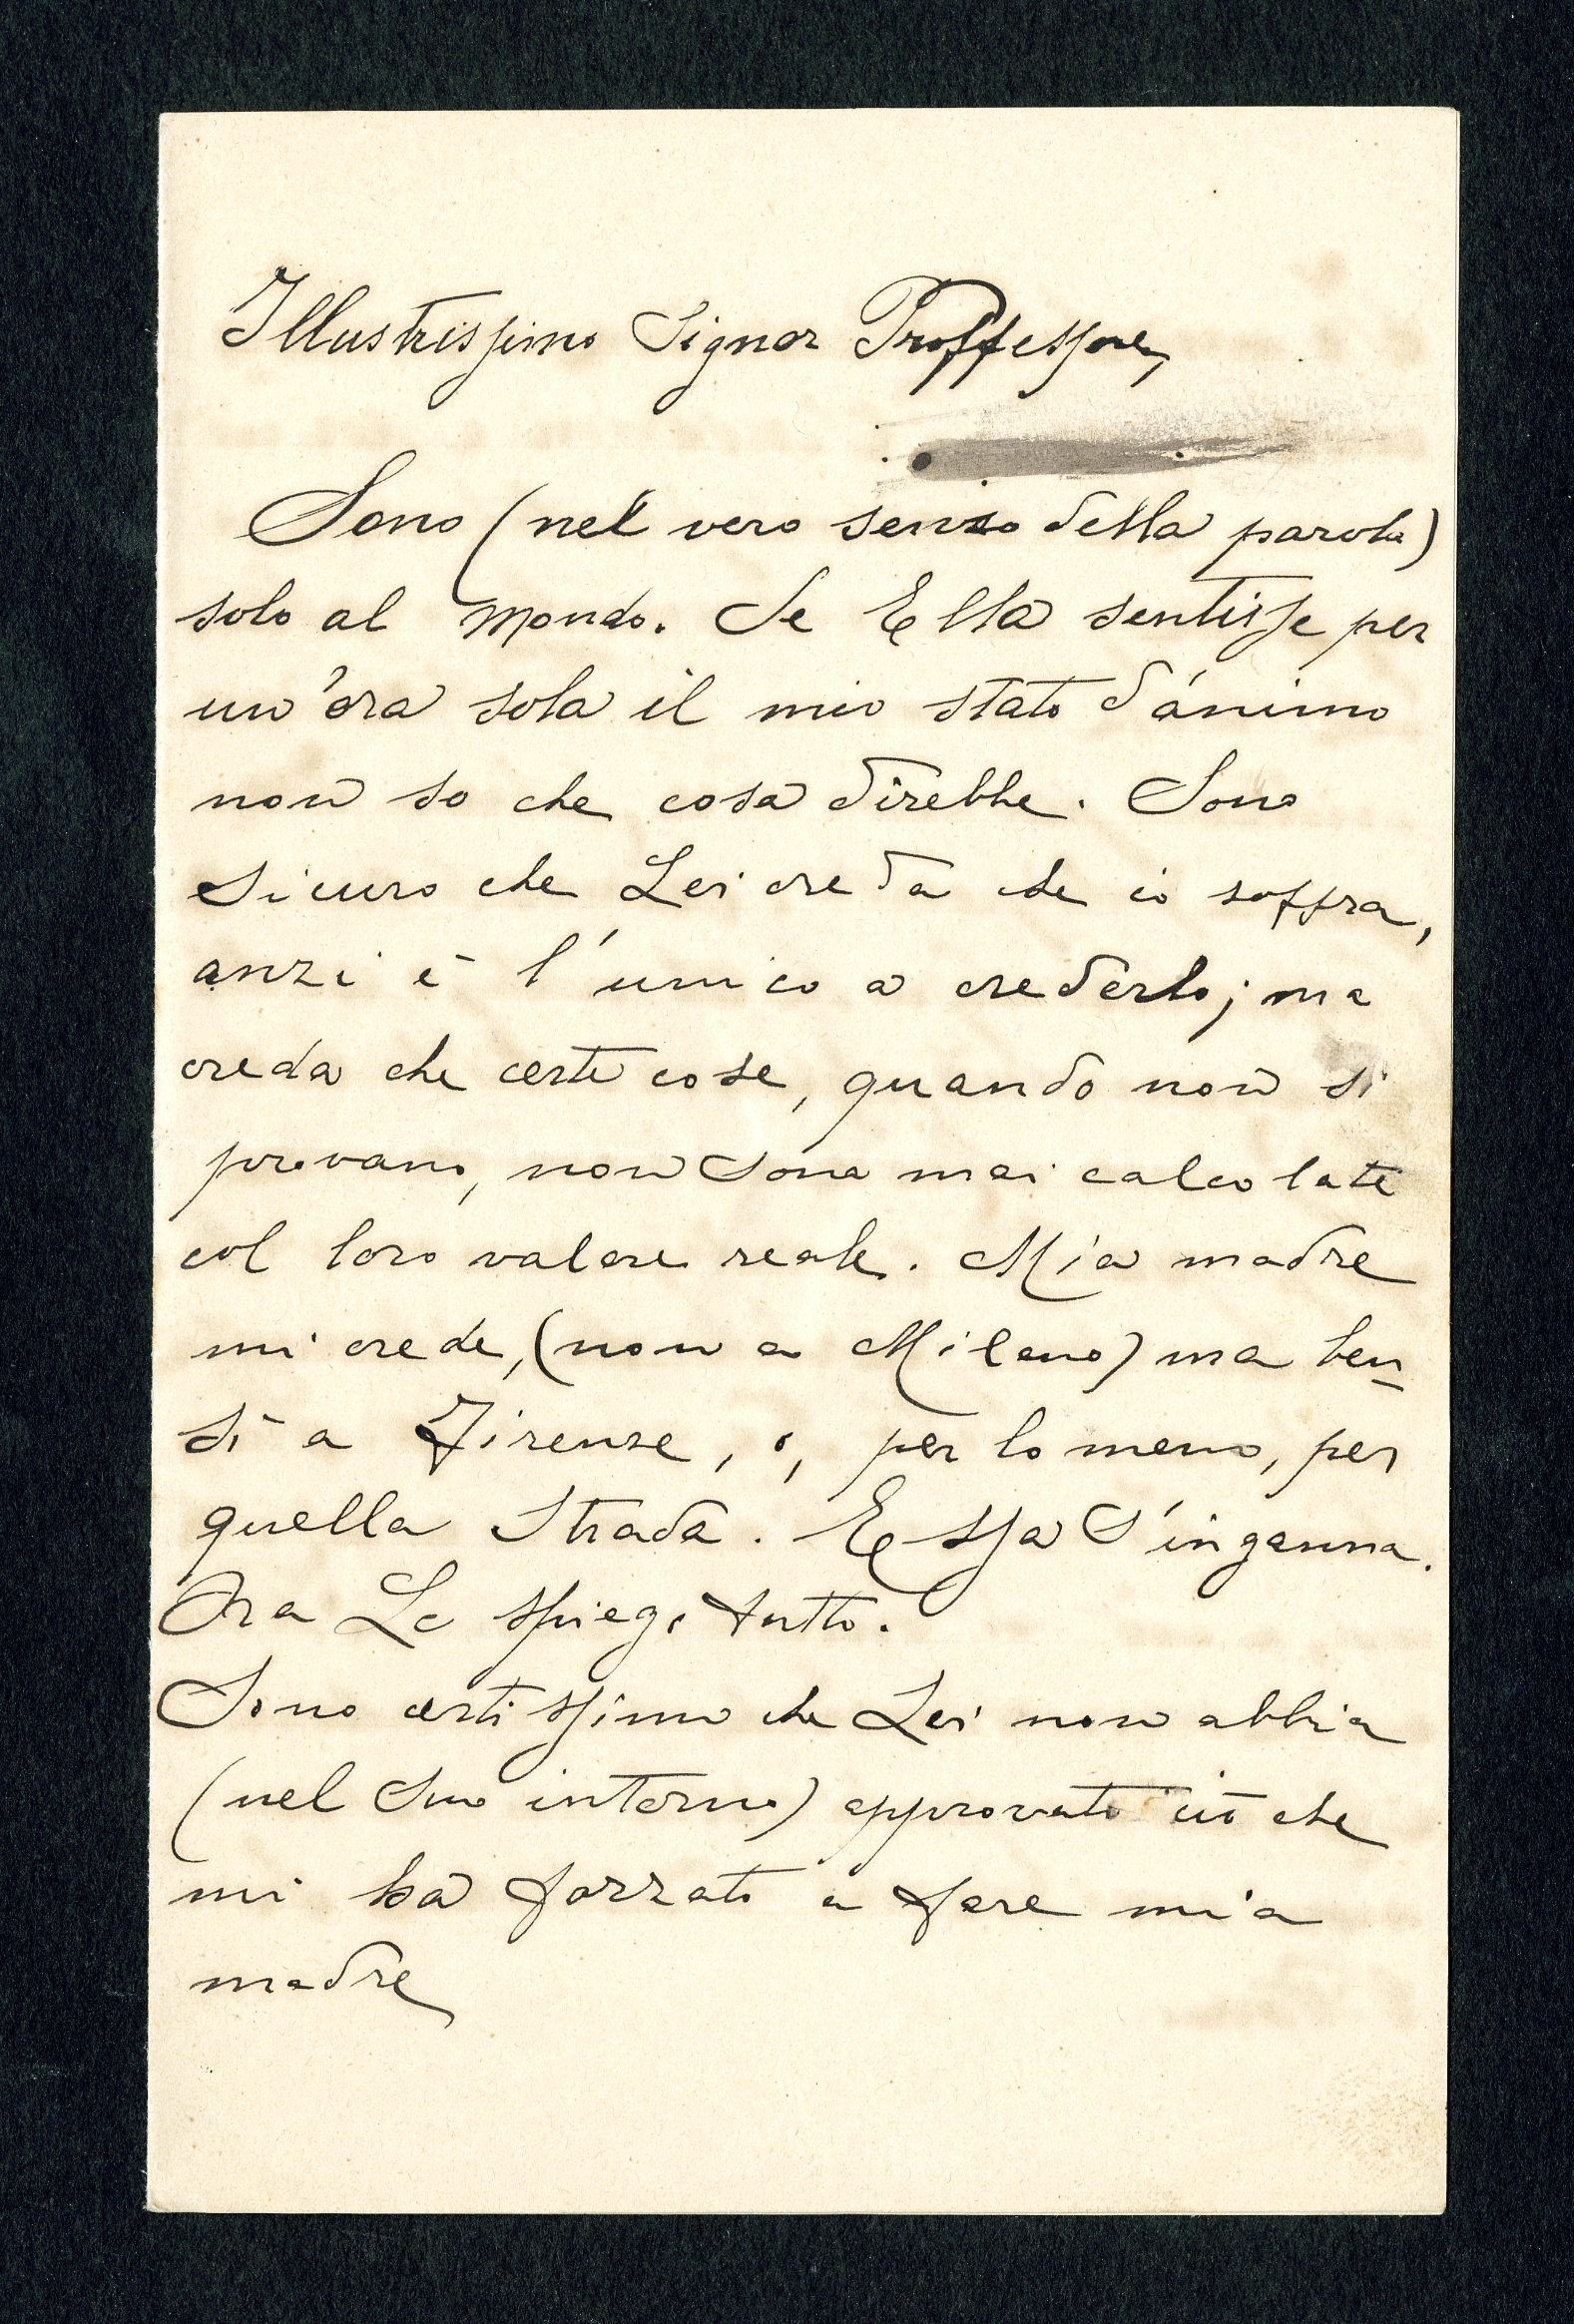 Illustrissimo Signor Proffessore,
Sono (nel vero senso della parola)
solo al mondo. Se Ella sentisse per
un'ora sola il mio stato d'animo
non so che cosa direbbe. Sono
sicuro che Lei creda che io soffra,
anzi è l'unico a crederlo; ma
creda che certe cose, quando non si
provano, non sono mai calcolate
col loro valore reale. Mia madre
mi crede, (non a Milano) ma ben-
sì a Firenze, o, per lo meno, per
quella strada. Essa s'inganna.
Ora Le spiego tutto.
Sono certissimo che Lei non abbia
(nel suo interno) approvato ciò che
mi ha forzato a fare mia
madre